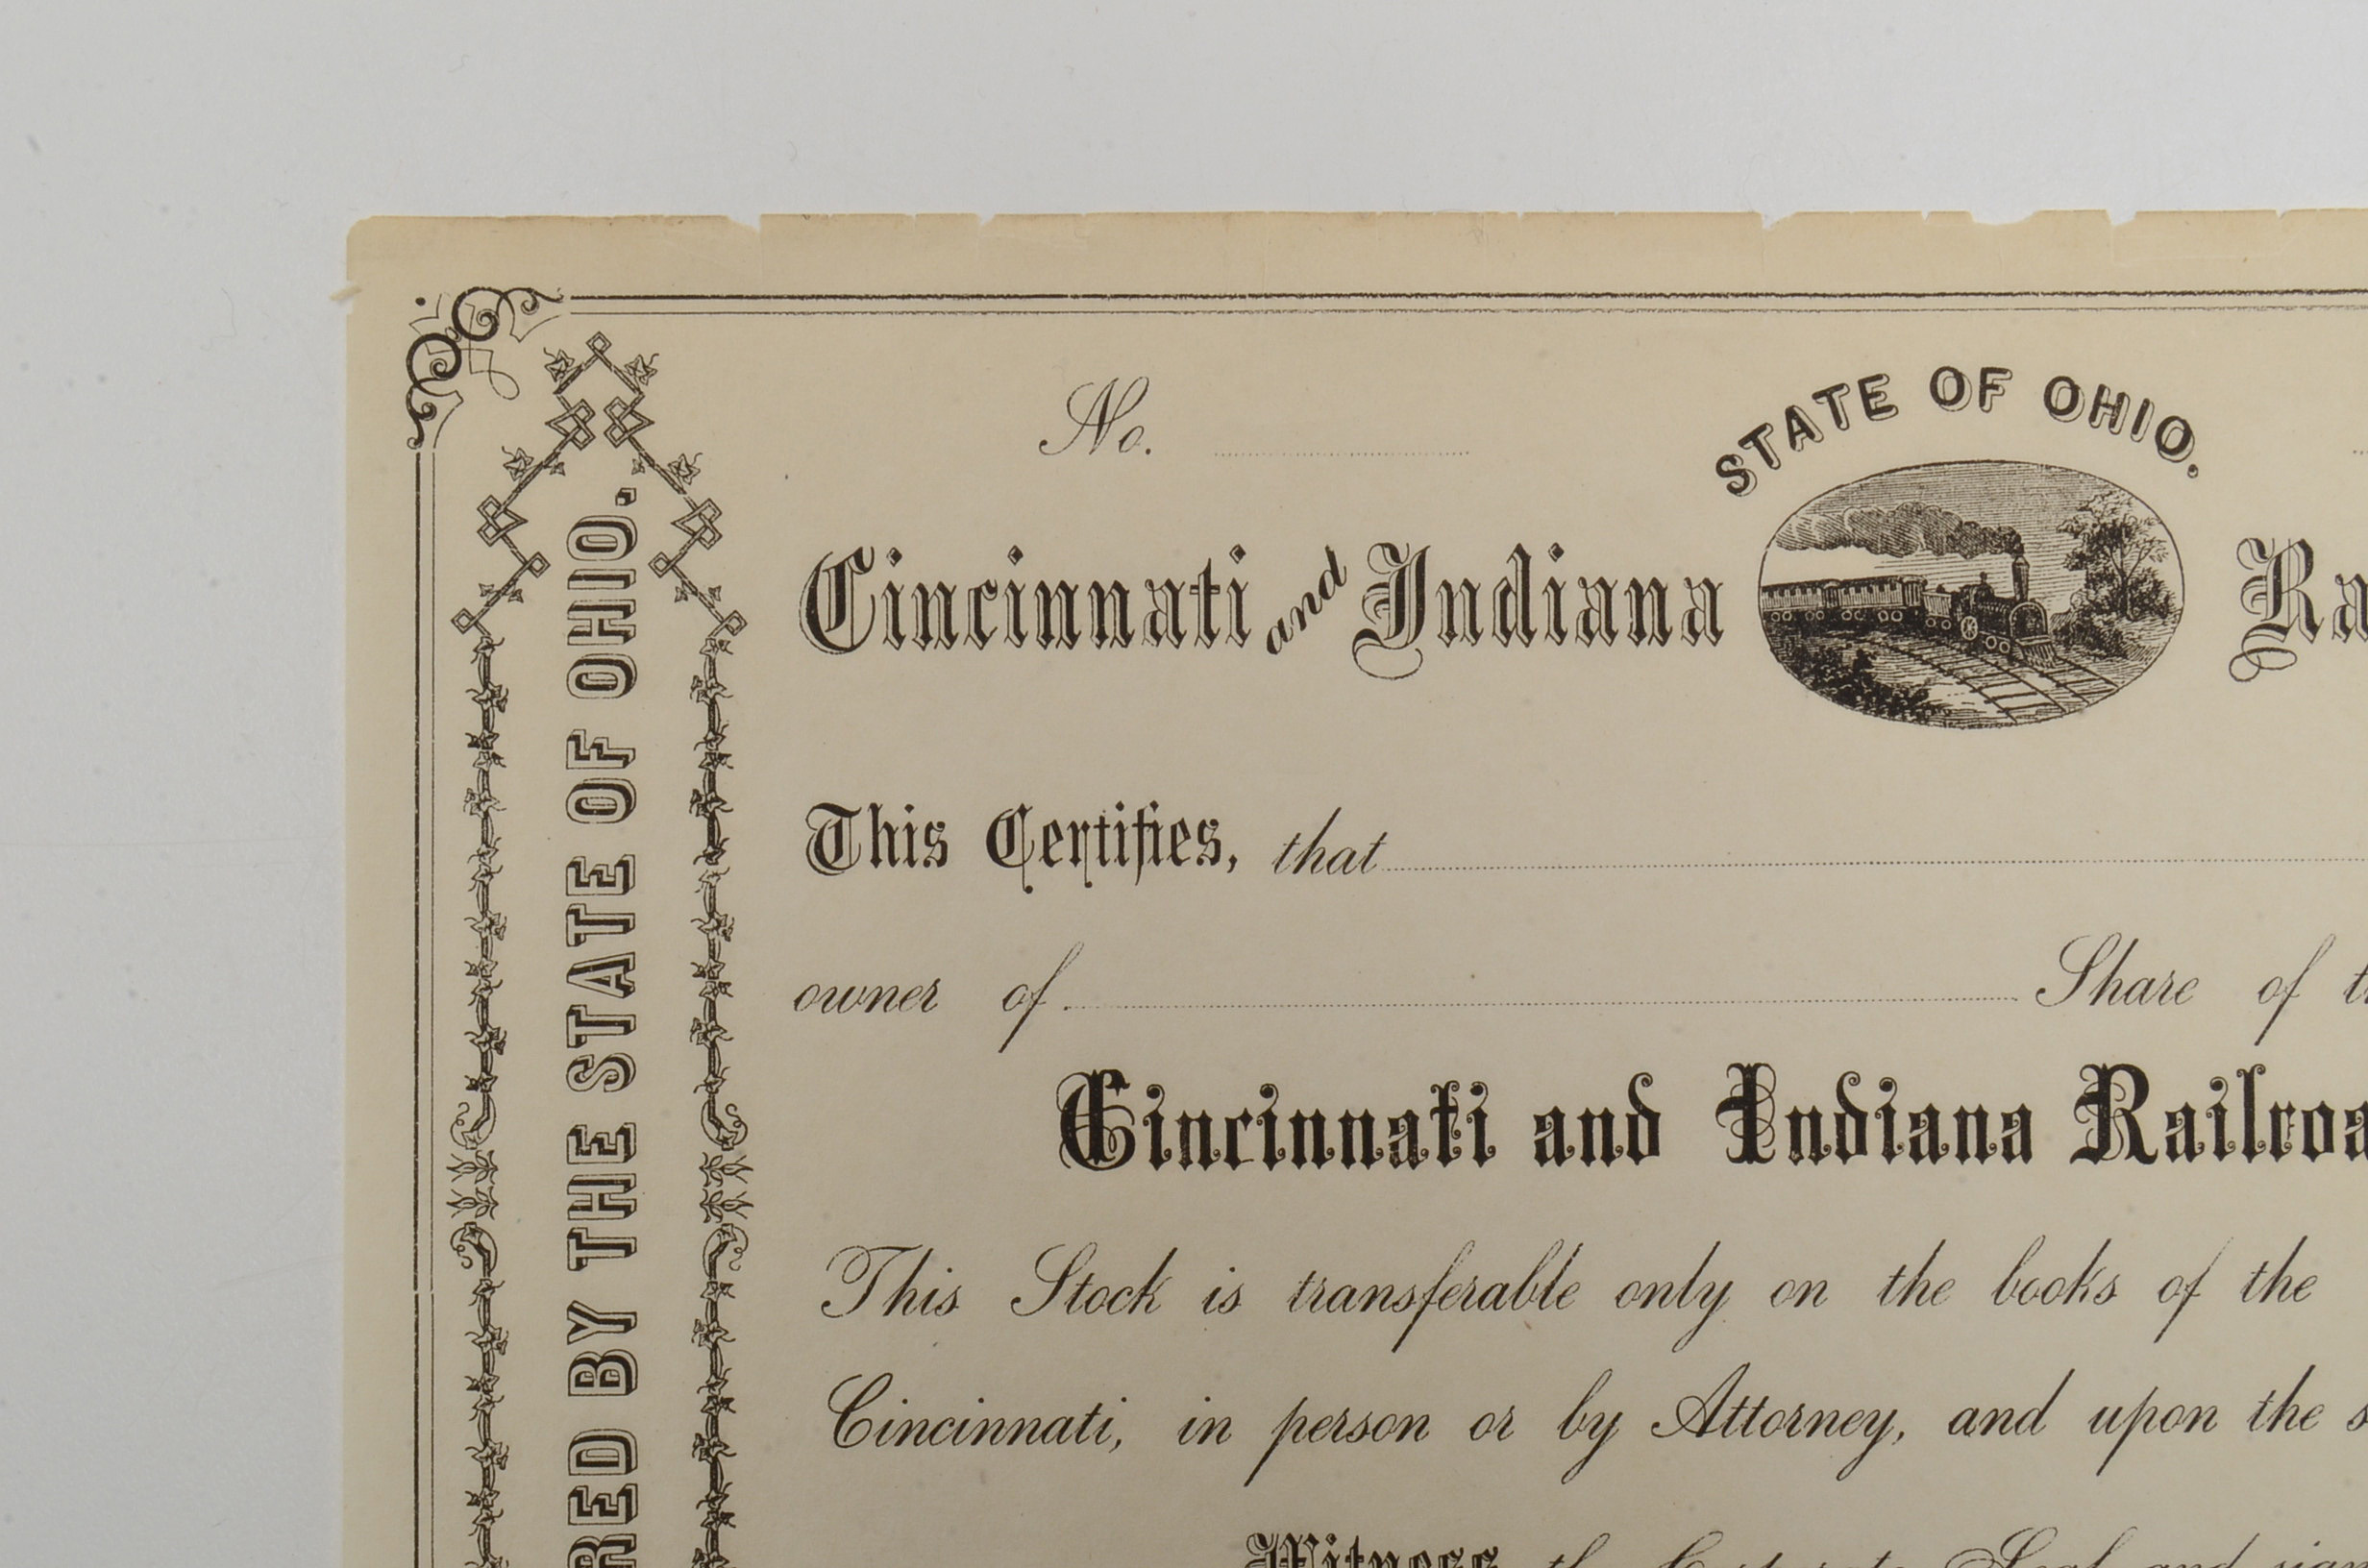 No.
STATE OF OHIO.
Cincinnati and Indiana
This Certifies, that
owner of Share of
Cincinnati and Indiana
This Stock is transferable only on the books of the
Cincinnati, in person or by Attorney, and upon the
Witness
BY THE STATE OF OHIO.